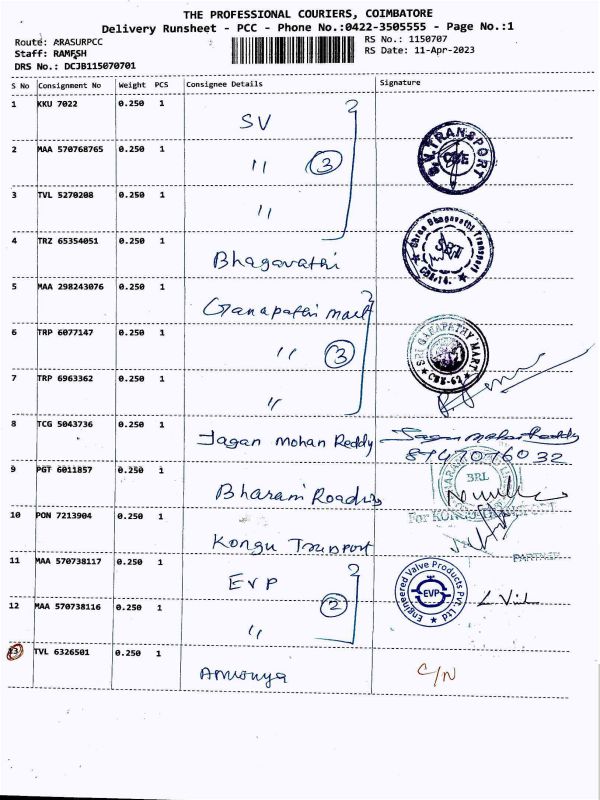 THE PROFESSIONAL COURIERS, COIMBATORE
Delivery Runsheet - PCC - Phone No.:0422-3505555 - Page No.:1
Route: ARASURPCC
RS No.: 1150707
Staff: RAMESH
RS Date: 11-Apr-2023
DRS No.: DCJB115070701
S No Consignment No Weight PCS Consignee Details Signature
1 KKU 7022 0.250 1
SV
2 MAA 570768765 0.250 1
" 3
S.V. TRANSPORT
CBE
3 TVL 5270208 0.250 1
"
4 TRZ 65354051 0.250 1
Bhagavathi
Shree Bhagavathi Transport
SBT
CBE-14.
5 MAA 298243076 0.250 1
Ganapathi mart
6 TRP 6077147 0.250 1
" 3
SRI GANAPATHY MART
CBE-62
7 TRP 6963362 0.250 1
"
8 TCG 5043736 0.250 1
Jagan Mohan Reddy Jagan Mohan Reddy
8147076032
9 PGT 6011857 0.250 1
BRL
Bharani Roadways
10 PON 7213904 0.250 1
For KONGU TRANSPORT
Kongu Transport
PARTNER
11 MAA 570738117 0.250 1
EVP
Engineered Valve Products Pvt. Ltd
EVP
12 MAA 570738116 0.250 1
" 2
13 TVL 6326501 0.250 1
C/N